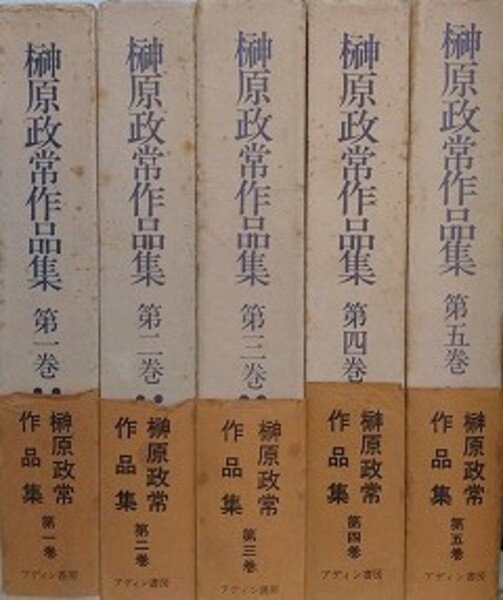 榊原政常作品集 第一巻
榊原政常
作品集 第一巻
アディン書房
榊原政常作品集 第二巻
榊原政常
作品集 第二巻
アディン書房
榊原政常作品集 第三巻
榊原政常
作品集 第三巻
アディン書房
榊原政常作品集 第四巻
榊原政常
作品集 第四巻
アディン書房
榊原政常作品集 第五巻
榊原政常
作品集 第五巻
アディン書房